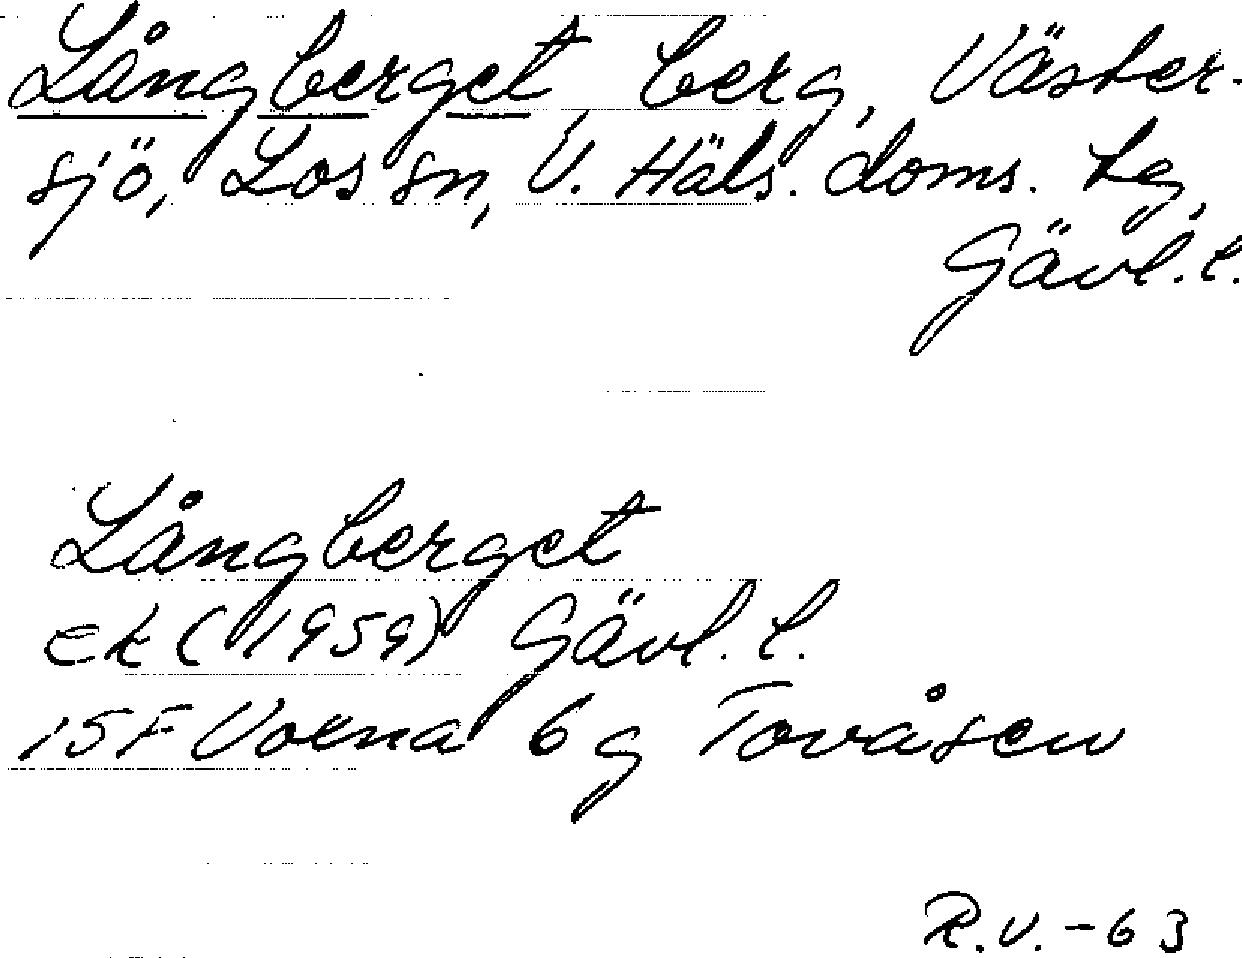 Långberget, berg, Väster-
sjö, Los sn, V. Häls. doms. tg,
Gävl. l.
Långberget
ek (1959) Gävl. l.
15F Voxna 6g Tovåsen
R.V. -63